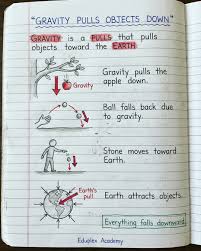 "GRAVITY PULLS OBJECTS DOWN"
GRAVITY is a PULLS that pulls
objects toward the EARTH.
Gravity
Gravity pulls the
apple down.
Ball falls back due
to gravity.
Stone moves toward
Earth.
Earth's
pull
Earth attracts objects.
Everything falls downward.
Eduplex Academy